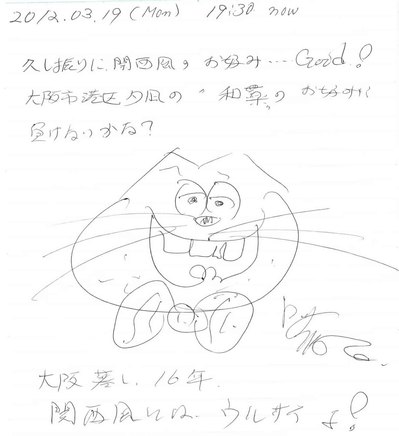 2012.03.19 (Mon) 19:30 now
久し振りに、関西風のお好み…Good!
大阪市港区夕凪の"和葉"のお好みに
負けないかな?
大阪暮し、16年、
関西風には、ウルサイよ!